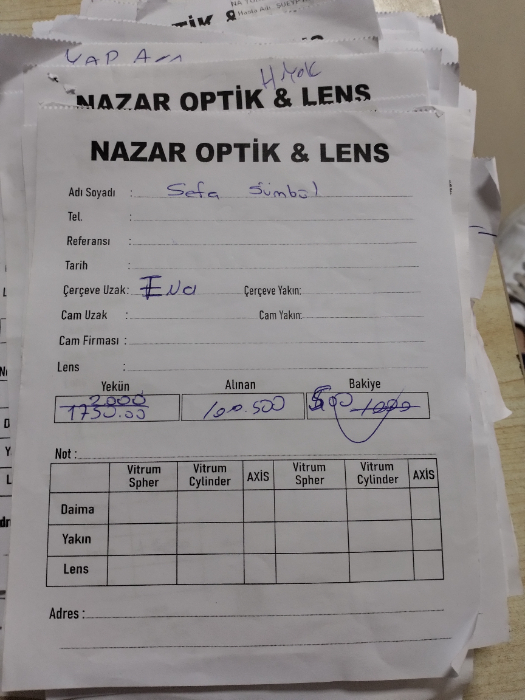 NAZAR OPTİK & LENS
NAZAR OPTİK & LENS
Adı Soyadı : Sefa Sümbül
Tel. :
Referansı :
Tarih :
Çerçeve Uzak: Çerçeve Yakın:
Cam Uzak : Cam Yakın:
Cam Firması :
Lens :
Yekün Alınan Bakiye
2000
1750.00 100.500 500 1000
Not :
Vitrum Spher Vitrum Cylinder AXİS Vitrum Spher Vitrum Cylinder AXİS
Daima
Yakın
Lens
Adres :